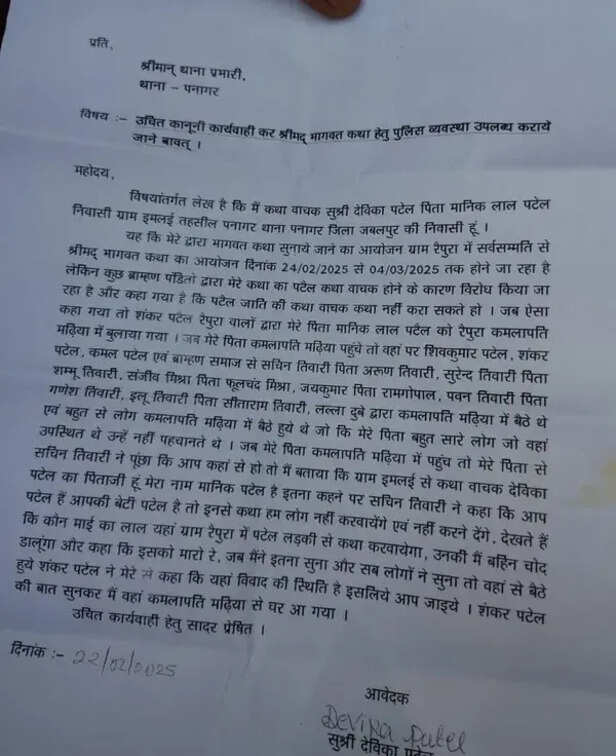 प्रति,
श्रीमान् थाना प्रभारी,
थाना – पनागर
विषय :– उचित कानूनी कार्यवाही कर श्रीमद् भागवत कथा हेतु पुलिस व्यवस्था उपलब्ध कराये
जाने बावत् ।
महोदय,
विषयांतर्गत लेख है कि मैं कथा वाचक सुश्री देविका पटेल पिता मानिक लाल पटेल
निवासी ग्राम इमलई तहसील पनागर थाना पनागर जिला जबलपुर की निवासी हूं ।
यह कि मेरे द्वारा भागवत कथा सुनाये जाने का आयोजन ग्राम रैपुरा में सर्वसम्मति से
श्रीमद् भागवत कथा का आयोजन दिनांक 24/02/2025 से 04/03/2025 तक होने जा रहा है
लेकिन कुछ ब्राम्हण पंडितो द्वारा मेरे कथा का पटेल कथा वाचक होने के कारण विरोध किया जा
रहा है और कहा गया है कि पटेल जाति की कथा वाचक कथा नहीं करा सकते हो । जब ऐसा
कहा गया तो शंकर पटेल रैपुरा वालों द्वारा मेरे पिता मानिक लाल पटेल को रैपुरा कमलापति
मढ़िया में बुलाया गया । जब मेरे पिता कमलापति मढ़िया पहुंचे तो वहां पर शिवकुमार पटेल, शंकर
पटेल, कमल पटेल एवं ब्राम्हण समाज से सचिन तिवारी पिता अरूण तिवारी, सुरेन्द तिवारी पिता
शम्भू तिवारी, संजीव मिश्रा पिता फूलचंद मिश्रा, जयकुमार पिता रामगोपाल, पवन तिवारी पिता
गणेश तिवारी, इलू तिवारी पिता सीताराम तिवारी, लल्ला दुबे द्वारा कमलापति मढ़िया में बैठे थे
एवं बहुत से लोग कमलापति मढ़िया में बैठे हुये थे जो कि मेरे पिता बहुत सारे लोग जो वहां
उपस्थित थे उन्हें नहीं पहचानते थे । जब मेरे पिता कमलापति मढ़िया में पहुंच तो मेरे पिता से
सचिन तिवारी ने पूंछा कि आप कहां से हो तो मैं बताया कि ग्राम इमलई से कथा वाचक देविका
पटेल का पिताजी हूं मेरा नाम मानिक पटेल है इतना कहने पर सचिन तिवारी ने कहा कि आप
पटेल हैं आपकी बेटी पटेल है तो इनसे कथा हम लोग नहीं करवायेंगे एवं नहीं करने देंगे, देखते हैं
कि कौन माई का लाल यहां ग्राम रैपुरा में पटेल लड़की से कथा करवायेगा, उनकी मैं बहिन चोद
डालूंगा और कहा कि इसको मारो रे, जब मैंने इतना सुना और सब लोगों ने सुना तो वहां से बैठे
हुये शंकर पटेल ने मेरे से कहा कि यहां विवाद की स्थिति है इसलिये आप जाइये । शंकर पटेल
की बात सुनकर मैं वहां कमलापति मढ़िया से घर आ गया ।
उचित कार्यवाही हेतु सादर प्रेषित ।
दिनांक :– 22/02/2025
आवेदक
Devika Patel
सुश्री देविका पटेल